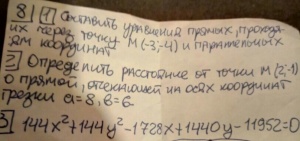 8) 1) Составить уравнения прямых, проходящ
их через точки M(-3;-4) и параллельных
ям координат
2) Определить расстояние от точки M(2;-1)
о прямой, отсекающей на осях координат
трезки a=8, b=6.
3) 144x²+144y²-1728x+1440y-11952=0